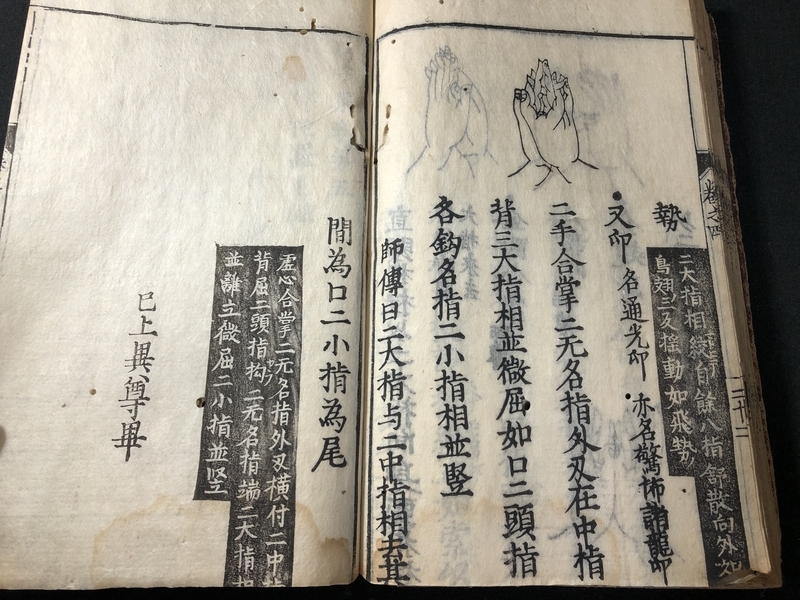 勢
二大指相繞自餘八指舒散向外如
鳥翅三叉搖動如飛勢
又印 名通光印 亦名驚怖諸龍印
二手合掌二无名指外叉在中指
背三大指相並微屈如口二頭指
各鈎名指二小指相並竪
師傳曰二大指与二中指相去其
間為口二小指為尾
虛心合掌二无名指外叉橫付二中指
背屈二頭指拘二无名指端二大指相
並離立微屈二小指並竪
已上異尊畢
卷之四
二十二